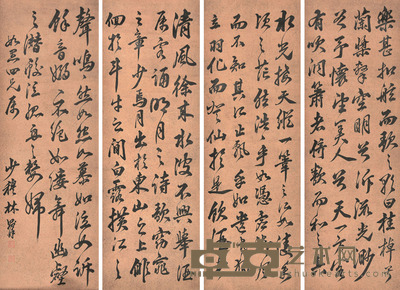 樂甚扣舷而歌之歌曰桂棹兮
蘭槳擊空明兮泝流光眇眇
兮予懷望美人兮天一方客
有吹洞簫者倚歌而和
水光接天縱一葦之所如凌萬
頃之茫然浩乎如憑虛御風
而不知其所止飄乎如遺世獨
立羽化而登仙於是飲酒
清風徐來水波不興舉酒
屬客誦明月之詩歌窈窕
之章少焉月出於東山之上徘
徊於斗牛之間白露橫江
聲嗚嗚然如怨如慕如泣如訴
餘音嫋嫋不絕如縷舞幽壑
之潛蛟泣孤舟之嫠婦
四兄屬
少穆林則徐